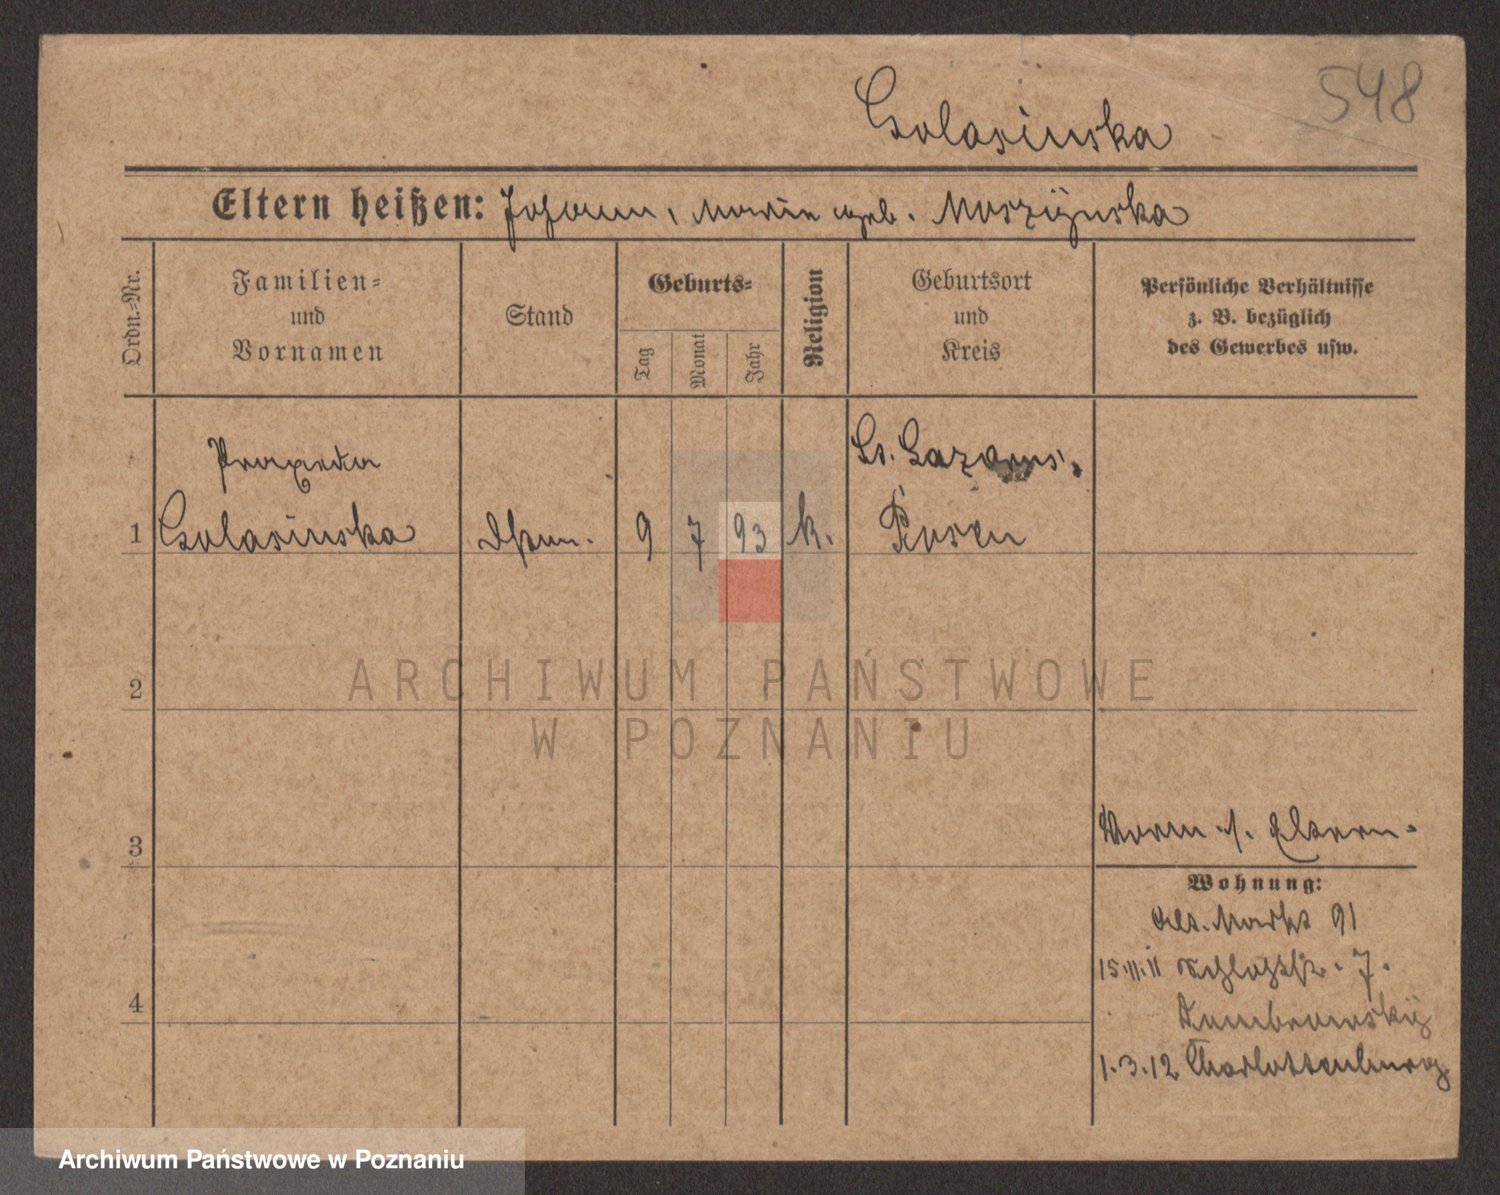 548
Golasinska
Eltern heißen: Johann, Marie geb. Moszÿnska
Ordn.-Nr.
Familien-
und
Vornamen
Stand
Geburts-
Tag
Monat
Jahr
Religion
Geburtsort
und
Kreis
Persönliche Verhältnisse
z. B. bezüglich
des Gewerbes usw.
Praxeda
1 Golasinska
9 7 93 k.
St. Lazarus.
Posen
ARCHIWUM PAŃSTWOWE
W POZNANIU
2
3
4
Eltern.
Wohnung:
Alt. Markt 91
15.11.11 Schloßstr. 7.
Dombrowskÿ
1.3.12 Charlottenburg
Archiwum Państwowe w Poznaniu